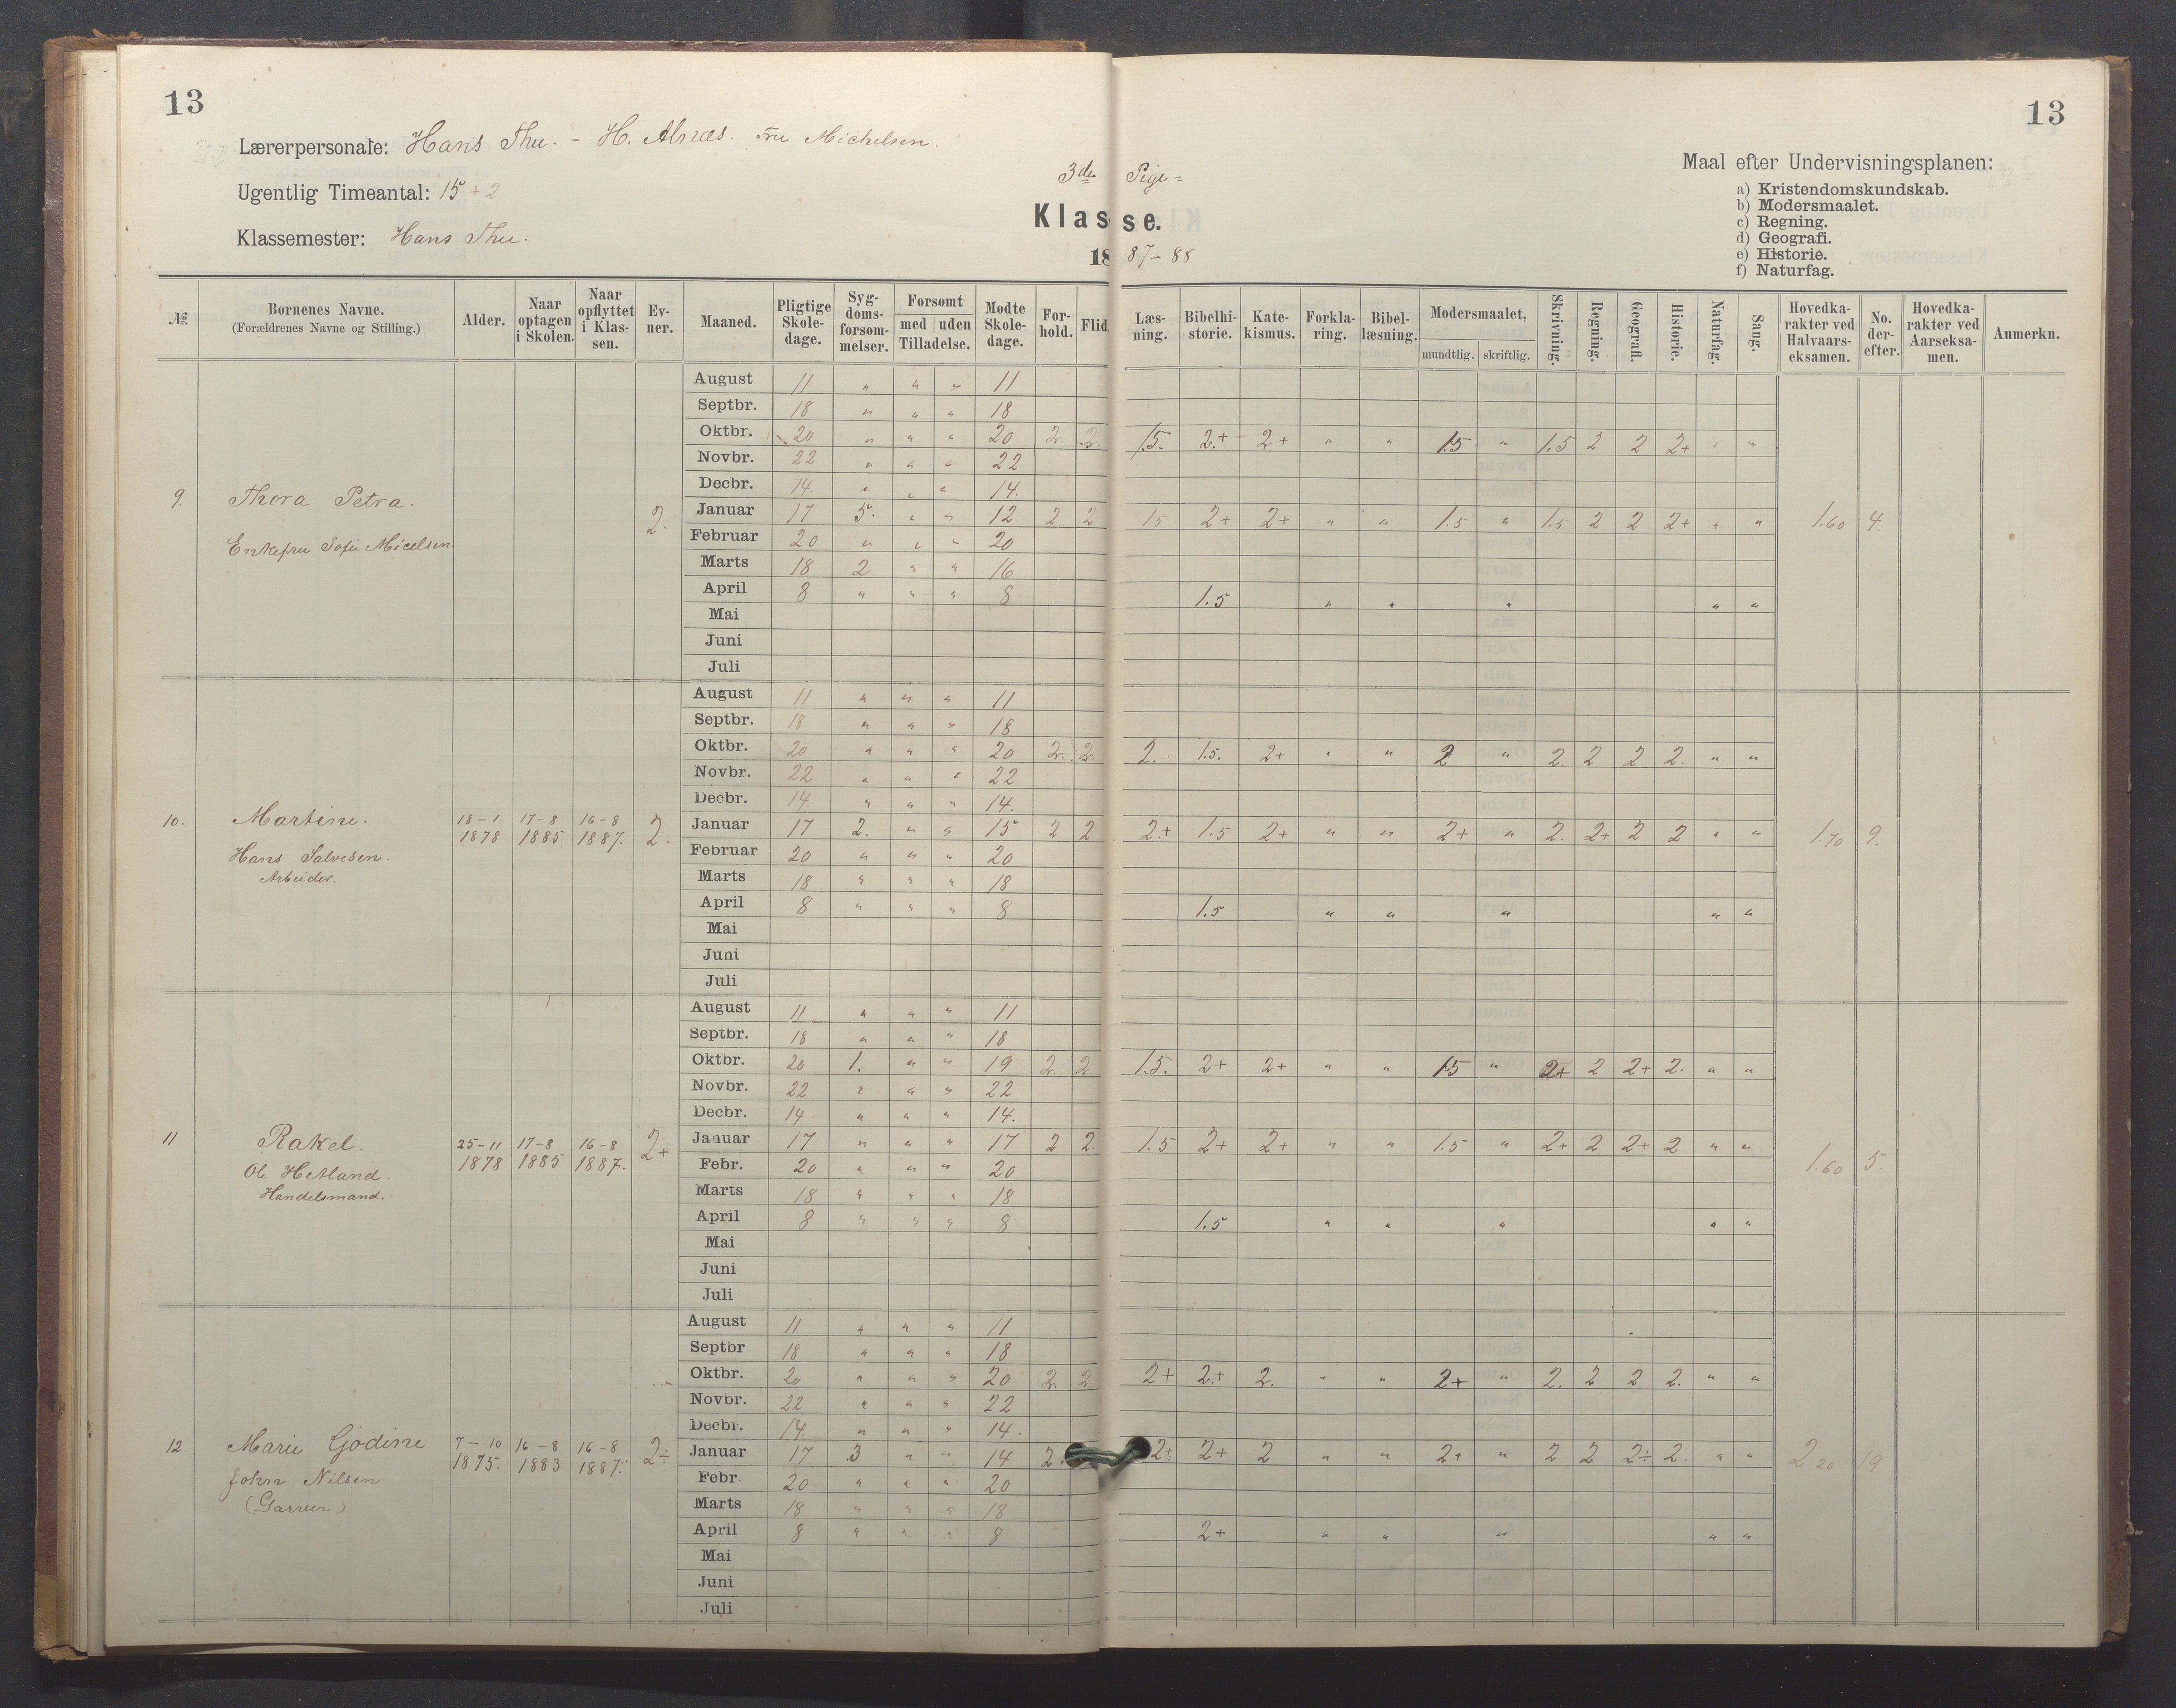 13
13
Lærerpersonale: Hans Thu. - H. Alnæs. Fru Michelsen.
Ugentlig Timeantal: 15 + 2
Klassemester: Hans Thu.
3die Pige=
Klasse.
1887-88
Maal efter Undervisningsplanen:
a) Kristendomskundskab.
b) Modersmaalet.
c) Regning.
d) Geografi.
e) Historie.
f) Naturfag.
№ | Børnenes Navne. (Forældrenes Navne og Stilling.) | Alder. | Naar optagen i Skolen. | Naar opflyttet i Klassen. | Evner. | Maaned. | Pligtige Skoledage. | Sygdomsforsømmelser. | Forsømt med uden Tilladelse. | Mødte Skoledage. | Forhold. | Flid | Læsning. | Bibelhistorie. | Katekismus. | Forklaring. | Bibellæsning. | Modersmaalet, mundtlig. skriftlig. | Skrivning. | Regning. | Geografi. | Historie. | Naturfag. | Sang. | Hovedkarakter ved Halvaarseksamen. | No. derefter. | Hovedkarakter ved Aarseksamen. | Anmerkn.
9. Thora Petra.
Enkefru Sofie Micelsen.
2.
August 11 " " " 11
Septbr. 18 " " " 18
Oktbr. 20 " " " 20 2. 2. 1.5. 2.+ 2+ " " 1.5 " 1.5 2 2 2+ " "
Novbr. 22 " " " 22
Decbr. 14. " " " 14.
Januar 17 5. " " 12 2 2 1.5 2+ 2+ " " 1.5 " 1.5 2 2 2+ " " 1.60 4.
Februar 20 " " " 20
Marts 18 2 " " 16
April 8 " " " 8 1.5 " " " " "
Mai
Juni
Juli
10. Martine.
Hans Salvesen.
Arbeider.
18-1 1878 17-8 1885 16-8 1887. 2.
August 11 " " " 11
Septbr. 18 " " " 18
Oktbr. 20 " " " 20 2. 2. 2. 1.5. 2+ " " 2 " 2. 2 2 2. " "
Novbr. 22 " " " 22
Decbr. 14. " " " 14.
Januar 17 2. " " 15 2 2 2.+ 1.5 2+ " " 2+ " 2. 2+ 2 2 " " 1.70 9.
Februar 20 " " " 20
Marts 18 " " " 18
April 8 " " " 8 1.5 " " " " "
Mai
Juni
Juli
11 Rakel.
Ole Hetland.
Handelsmand.
25-11 1878 17-8 1885 16-8 1887. 2+
August 11 " " " 11
Septbr. 18 " " " 18
Oktbr. 20 1. " " 19 2. 2 1.5. 2+ 2+ " " 1.5 " 2+ 2 2+ 2. " "
Novbr. 22 " " " 22
Decbr. 14 " " " 14.
Januar 17 " " " 17 2 2. 1.5 2+ 2+ " " 1.5 " 2+ 2 2+ 2 " " 1.60 5.
Febr. 20 " " " 20
Marts 18 " " " 18
April 8 " " " 8 1.5 " " " " "
Mai
Juni
Juli
12 Marie Gjodine
John Nilsen
(Garver)
7-10 1875. 16-8 1883 16-8 1887. 2÷
August 11 " " " 11
Septbr 18 " " " 18
Oktbr. 20 " " " 20 2. 2. 2+ 2.+ 2. " " 2+ " 2. 2 2 2. " "
Novbr. 22 " " " 22
Decbr. 14. " " " 14.
Januar 17 3 " " 14 2. 2÷ 2+ 2 " " 2+ " 2 2 2÷ 2. " " 2.20 19.
Febr. 20 " " " 20
Marts 18 " " " 18
April 8 " " " 8 2+ " " " " "
Mai
Juni
Juli